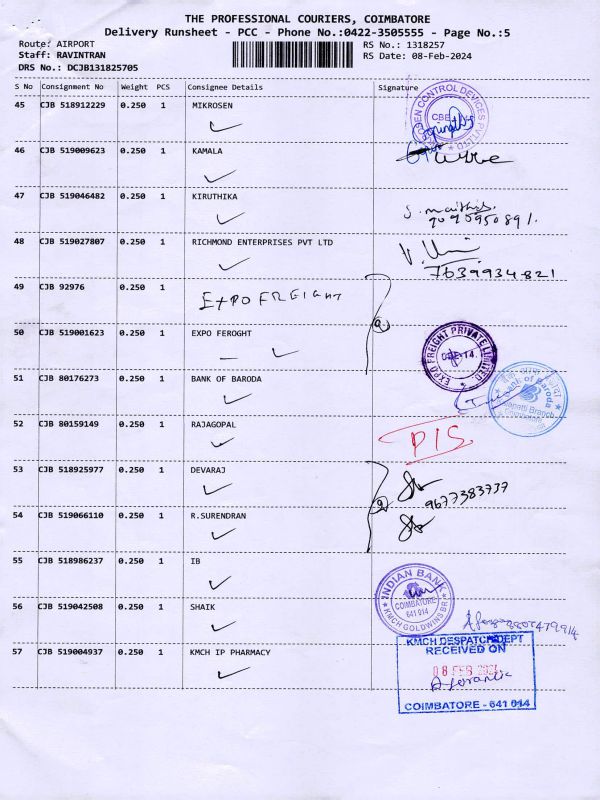 THE PROFESSIONAL COURIERS, COIMBATORE
Delivery Runsheet - PCC - Phone No.:0422-3505555 - Page No.:5
Route: AIRPORT
RS No.: 1318257
Staff: RAVINTRAN
RS Date: 08-Feb-2024
DRS No.: DCJB131825705
S No Consignment No Weight PCS Consignee Details Signature
45 CJB 518912229 0.250 1 MIKROSEN
CONTROL DEVICES PVT LTD
CBE
46 CJB 519009623 0.250 1 KAMALA
47 CJB 519046482 0.250 1 KIRUTHIKA
9090950891.
48 CJB 519027807 0.250 1 RICHMOND ENTERPRISES PVT LTD
7639934821
49 CJB 92976 0.250 1 EXPO FREIGHT
50 CJB 519001623 0.250 1 EXPO FEROGHT
EXPO FREIGHT PRIVATE LIMITED
51 CJB 80176273 0.250 1 BANK OF BARODA
Bank of Baroda
52 CJB 80159149 0.250 1 RAJAGOPAL
D/S
53 CJB 518925977 0.250 1 DEVARAJ
9677383737
54 CJB 519066110 0.250 1 R.SURENDRAN
55 CJB 518986237 0.250 1 IB
INDIAN BANK
COIMBATORE
641 014
KMCH GOLDWINS BR
56 CJB 519042508 0.250 1 SHAIK
57 CJB 519004937 0.250 1 KMCH IP PHARMACY
KMCH DESPATCH DEPT
RECEIVED ON
08 FEB 2024
COIMBATORE - 641 014